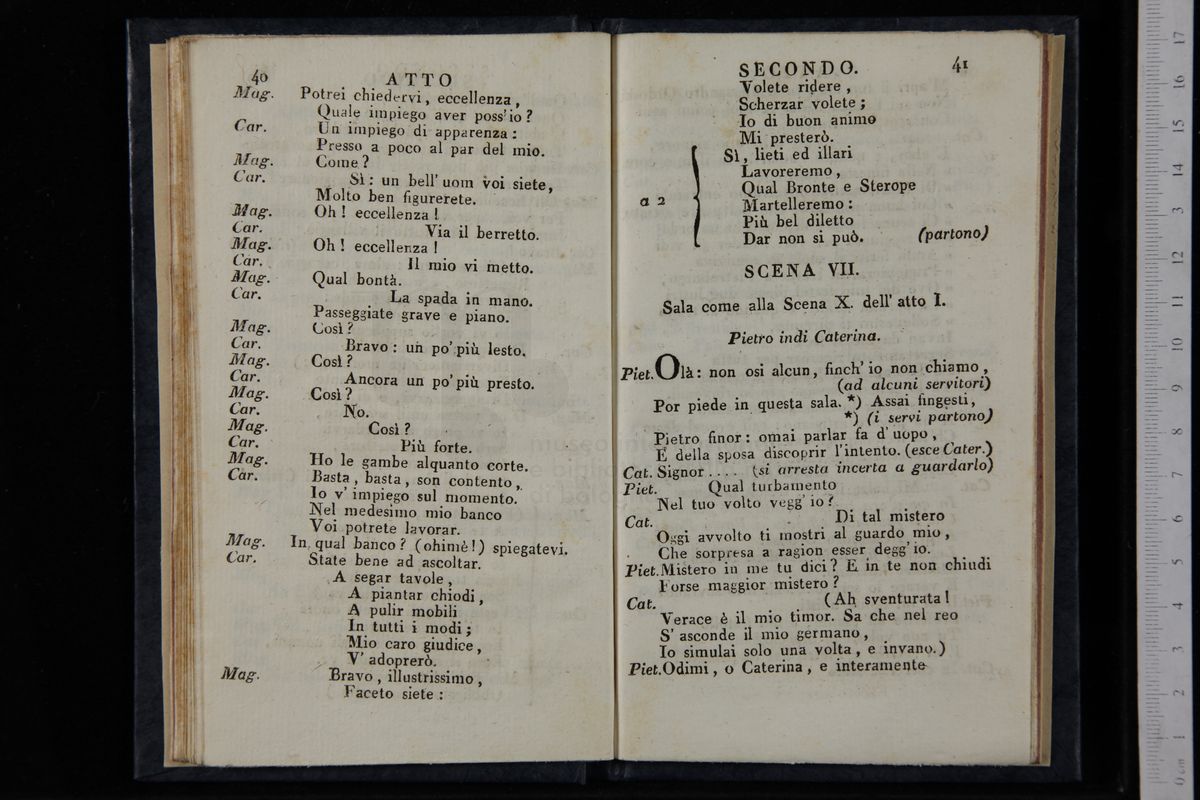 40
ATTO
Mag. Potrei chiedervi, eccellenza,
Quale impiego aver poss'io?
Car. Un impiego di apparenza:
Presso a poco al par del mio.
Mag. Come?
Car. Sì: un bell' uom voi siete,
Molto ben figurerete.
Mag. Oh! eccellenza!
Car. Via il berretto.
Mag. Oh! eccellenza!
Car. Il mio vi metto.
Mag. Qual bontà.
Car. La spada in mano.
Passeggiate grave e piano.
Mag. Così?
Car. Bravo: un po' più lesto.
Mag. Così?
Car. Ancora un po' più presto.
Mag. Così?
Car. No.
Mag. Così?
Car. Più forte.
Mag. Ho le gambe alquanto corte.
Car. Basta, basta, son contento,
Io v' impiego sul momento.
Nel medesimo mio banco
Voi potrete lavorar.
Mag. In qual banco? (ohimè!) spiegatevi.
Car. State bene ad ascoltar.
A segar tavole,
A piantar chiodi,
A pulir mobili
In tutti i modi;
Mio caro giudice,
V' adoprerò.
Mag. Bravo, illustrissimo,
Faceto siete:
SECONDO.
41
Volete ridere,
Scherzar volete;
Io di buon animo
Mi presterò.
a 2
Sì, lieti ed illari
Lavoreremo,
Qual Bronte e Sterope
Martelleremo:
Più bel diletto
Dar non si può. (partono)
SCENA VII.
Sala come alla Scena X. dell' atto I.
Pietro indi Caterina.
Piet. Olà: non osi alcun, finch' io non chiamo,
(ad alcuni servitori)
Por piede in questa sala. *) Assai fingesti,
*) (i servi partono)
Pietro finor: omai parlar fa d' uopo,
E della sposa discoprir l'intento. (esce Cater.)
Cat. Signor.... (si arresta incerta a guardarlo)
Piet. Qual turbamento
Nel tuo volto vegg' io?
Cat. Di tal mistero
Oggi avvolto ti mostri al guardo mio,
Che sorpresa a ragion esser degg' io.
Piet. Mistero in me tu dici? E in te non chiudi
Forse maggior mistero?
Cat. (Ah sventurata!
Verace è il mio timor. Sa che nel reo
S' asconde il mio germano,
Io simulai solo una volta, e invano.)
Piet. Odimi, o Caterina, e interamente